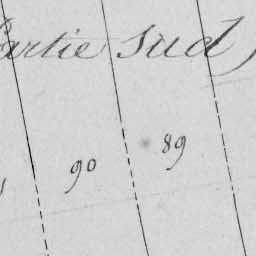 Partie Sud)
90 89